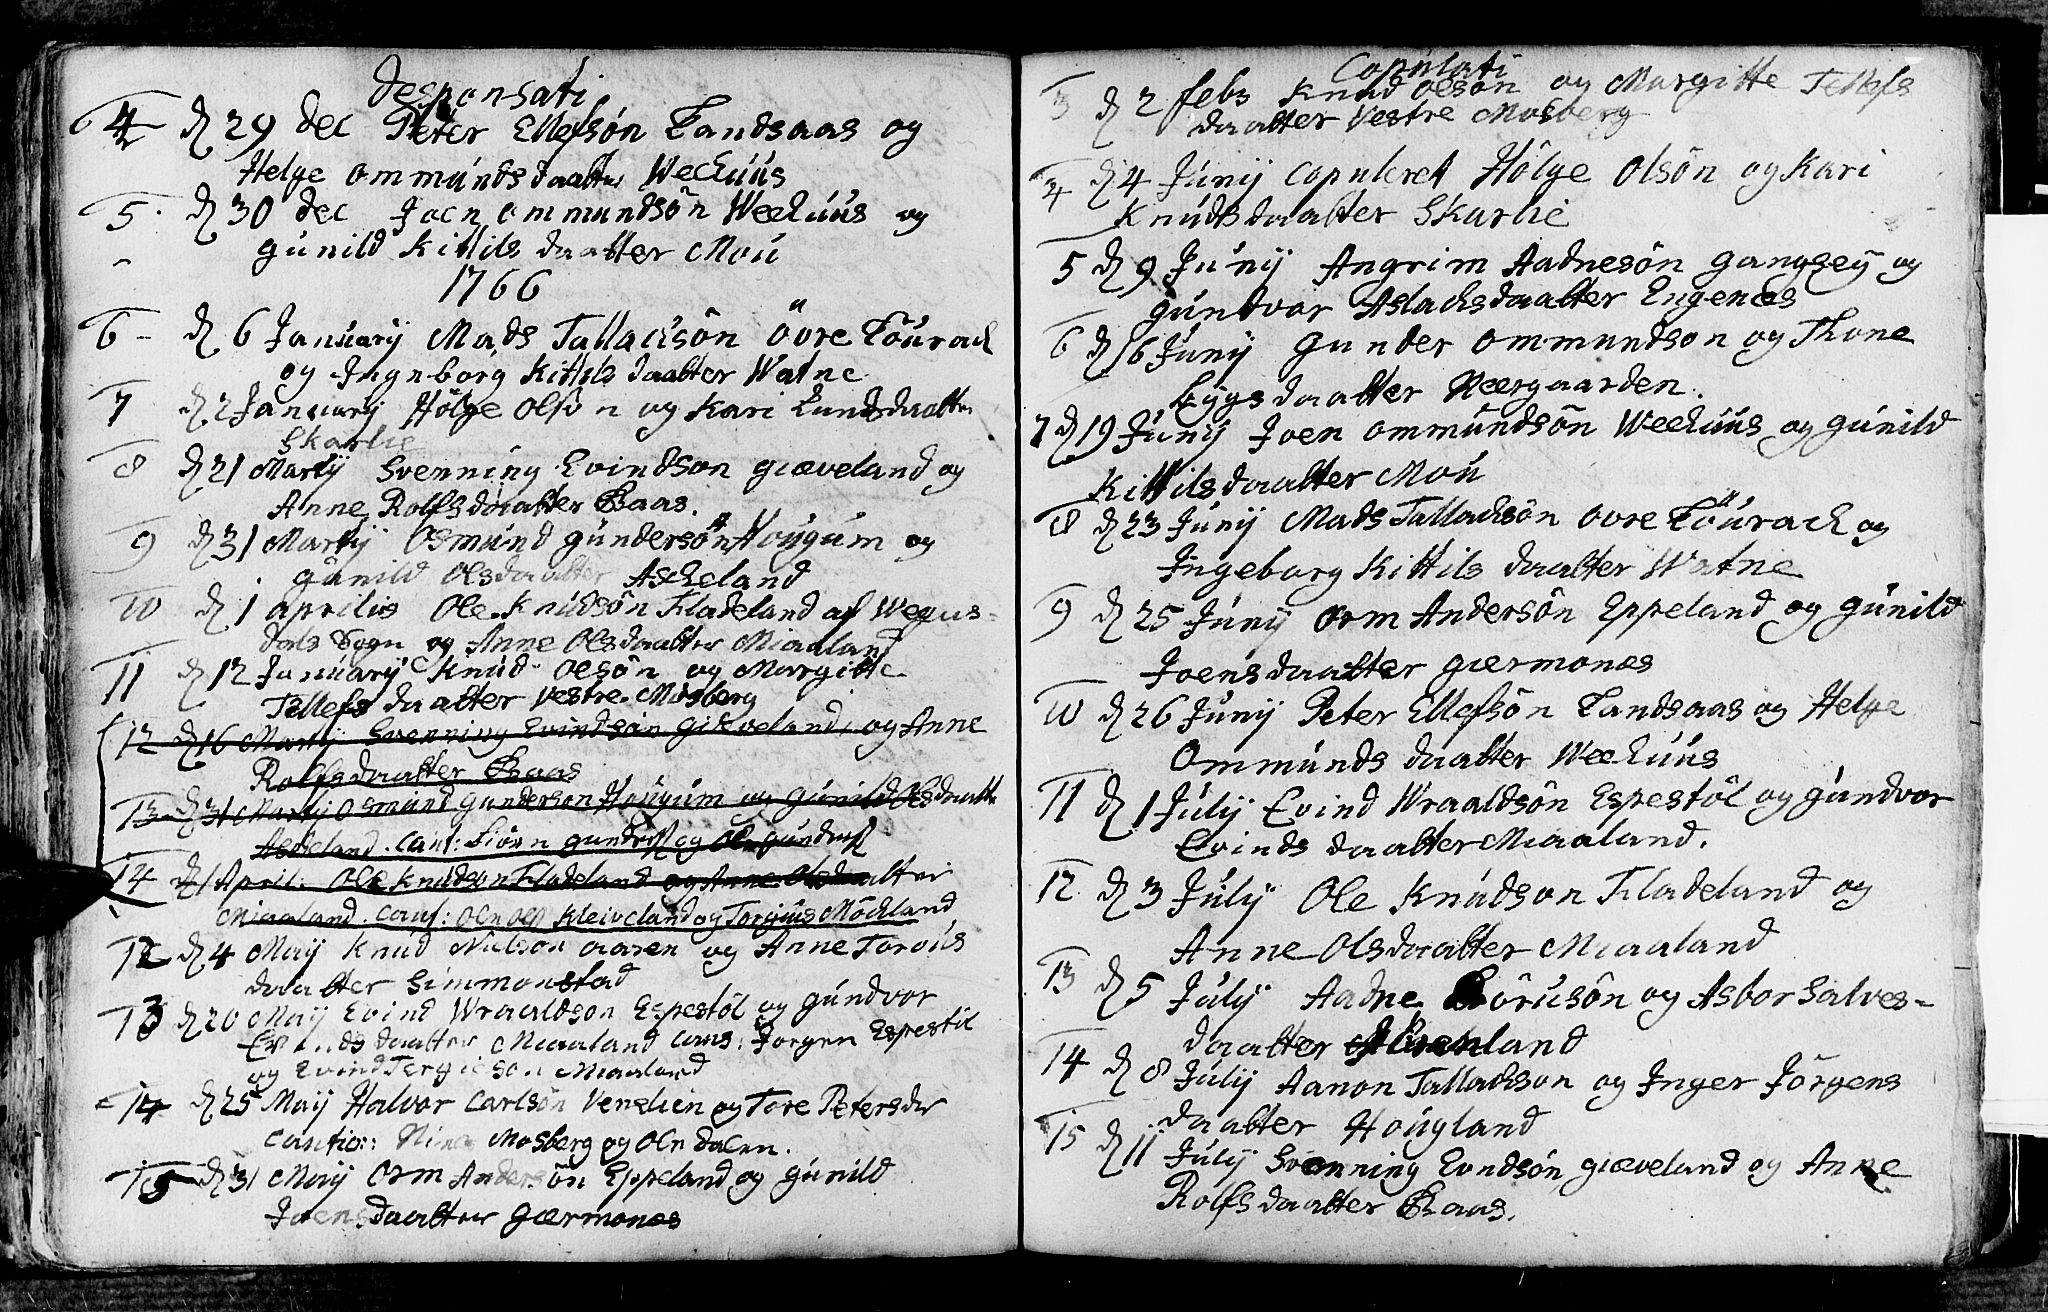 desponsati
4 d 29 dec Peter Ellefsön Landsaas og
Helge ommunds daatter Weehuus
5. d 30 dec Joen ommundsön Weehuus og
gunild Kittils daatter Mou
1766
6 - d 6 January Mads Tallachsön övre Tourach
og Ingeborg Kittils daatter Watne
7 d 2 January Hölge Olsön og Kari Lundsdaatter
Skarlie
8 d 21 Martij Svenning Evindson giæveland og
Anne Rolfsdaatter Baas.
9 d 31 Martij Osmund gundersön Hougum og
gunild Olsdaatter Askeland
10 d 1 aprilis Ole Knudsön Fladeland af Wegus-
dals Sogn og Anne Olsdaatter Miaaland
11 d 12 January Knud olsön og Margitte
Tellefs daatter vestre Mosberg
12 d 16 Martij Svenning Evindsön giæveland, og Anne
Rolfsdaatter Baas
13 d 31 Martij Osmund gunderson Hougum og gunild Olsdaatter
Askeland. caut: Siövn og Ole
14 d 1 April: Ole Knudson Fladeland og Anne Olsdaatter
Miaaland. caut: Ole Kleiveland og Torjuus Möckland
12 d 4 Maij Knud Nielson aasen og Anne Torvus
daatter Simmonstad
13 d 20 Maij Evind Wraaldson Espestöl og gundvor
Evinds daatter Miaaland caus: Jorgen Espestöl
og Evind Tergieson Miaaland
14 d 25 Maij Halvor Carlsön Venelien og Tore Peters dtr
Cautio: Mosberg og Ole Dalen.
15 d 31 Maij Orm Andersön Eppeland og gunild
Joensdaatter giermonæs
Copulati
3 d 2 febr Knud Olsön og Margitte Tellefs
daatter Vestre Mosberg
4 d 4 Junij Copuleret Hölge Olsön og Kari
Knudsdaatter Skarlie
5 d 9 Junij Angrim Aadnesön gangsey og
gundvor Aslachsdaatter Engenæs
6 d 16 Junij Gunder ommundson og Thone
Lygsdaatter Neergaarden.
7 d 19 Junij Joen ommundsön Weehuus og gunild
Kittilsdaatter Mou
8 d 23 Junij Mads Tallachsön ovre Töurach og
Ingeborg Kittils daatter Watne
9 d 25 Junij Orm Andersön Eppeland og gunild
Joensdaatter giermonæs
10 d 26 Junij Peter Ellefsön Landsaas og Helge
Ommunds daatter Weehuus
11 d 1 Julij Evind Wraaldsön Espestöl og gundvor
Evinds daatter Miaaland.
12 d 3 Julij Ole Knudson Fladeland og
Anne Olsdaatter Miaaland
13 d 5 Julij Aadne og Asbor Salves-
daatter
14 d 8 Julij Aanon Tallachson og Inger Jörgens
daatter Hougland
15 d 11 Julij Svenning Evndsön giæveland og Anne
Rolfs daatter Baas.